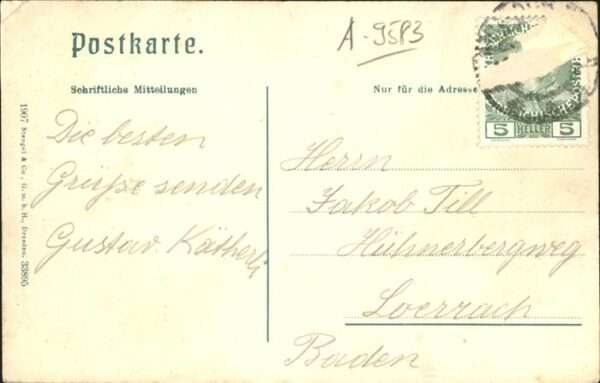 Postkarte.
A-9583
Schriftliche Mitteilungen
Nur für die Adresse
5 HELLER 5
Die besten
Grüße senden
Gustav. Kätherli
Herrn
Jakob Till
Hühnerbergweg
Loerrach
Baden
1907 Stengel & Co., G. m. b. H., Dresden. 33895